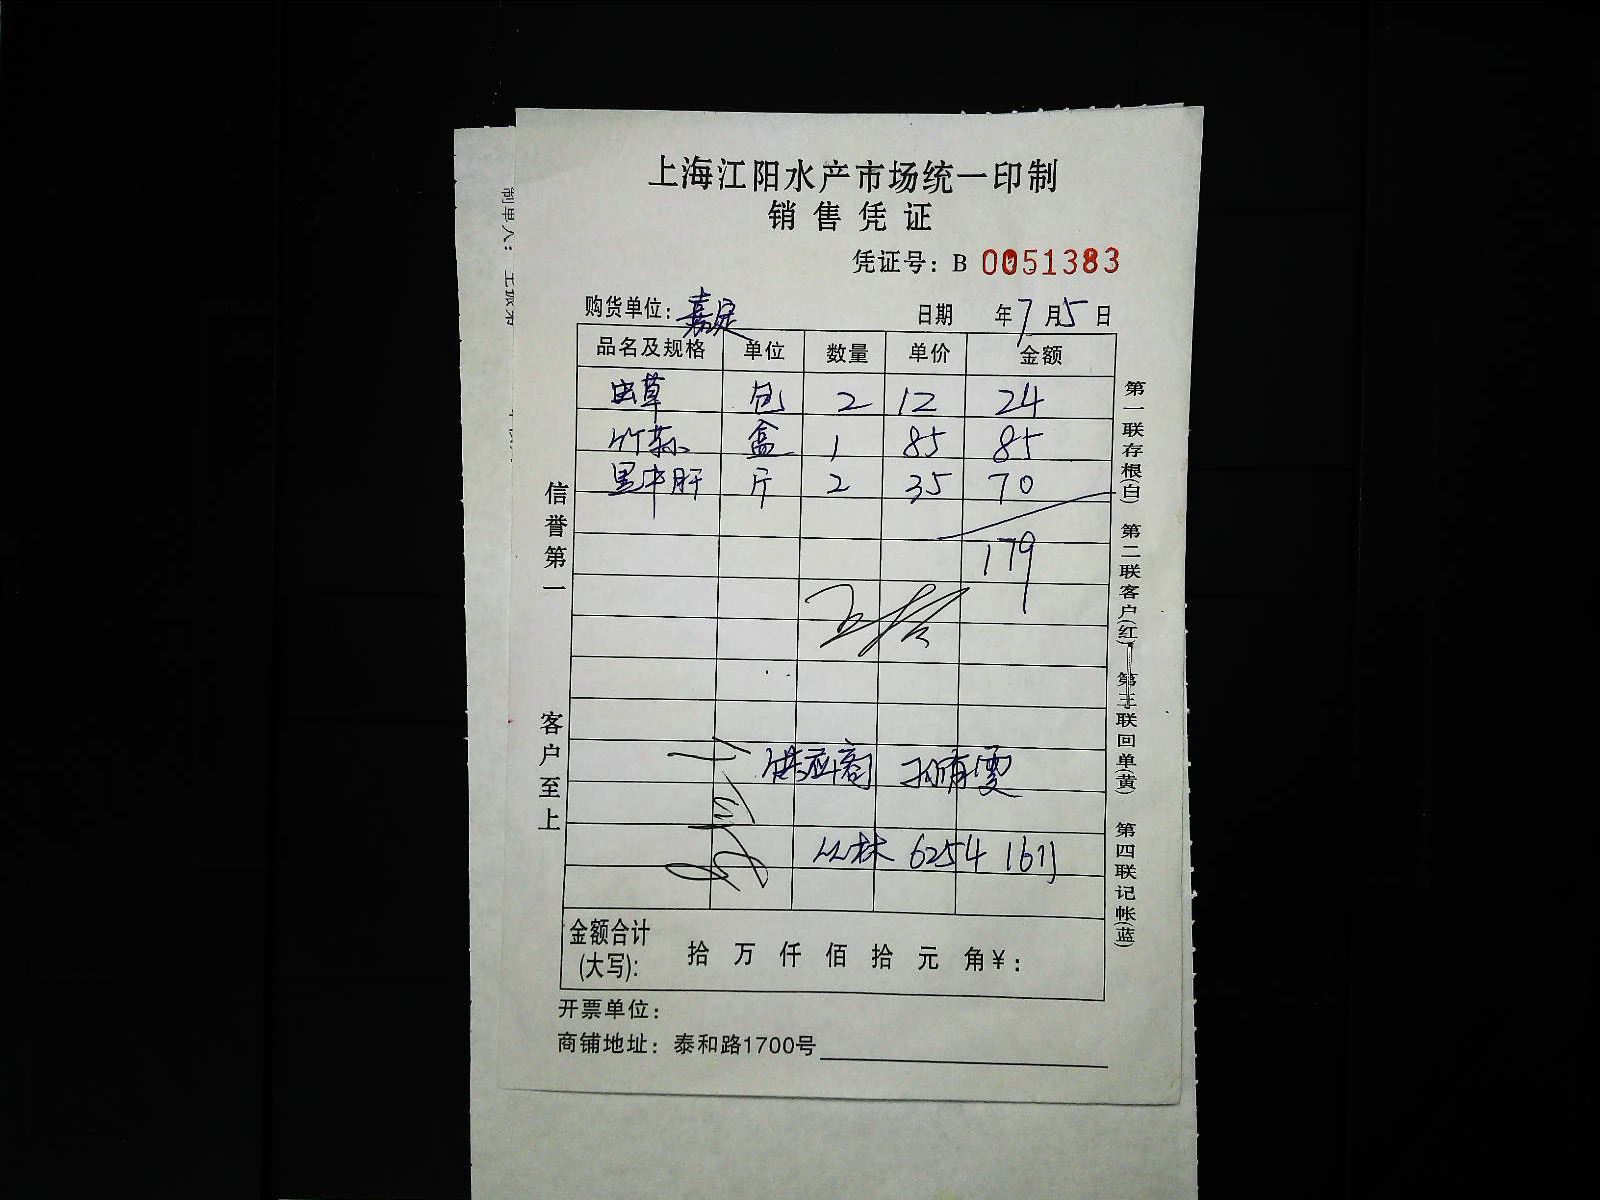 上海江阳水产市场统一印制
销售凭证
凭证号：B 0051383
购货单位：嘉定 日期 年7月5日
品名及规格 单位 数量 单价 金额
虫草 包 2 12 24
竹荪 盒 1 85 85
黑牛肝 斤 2 35 70
179
供应商 孙有雯
丛林 6254 1611
金额合计(大写)： 拾 万 仟 佰 拾 元 角 ¥：
开票单位：
商铺地址：泰和路1700号
信誉第一
客户至上
第一联存根(白) 第二联客户(红) 第三联回单(黄) 第四联记帐(蓝)
制单人：